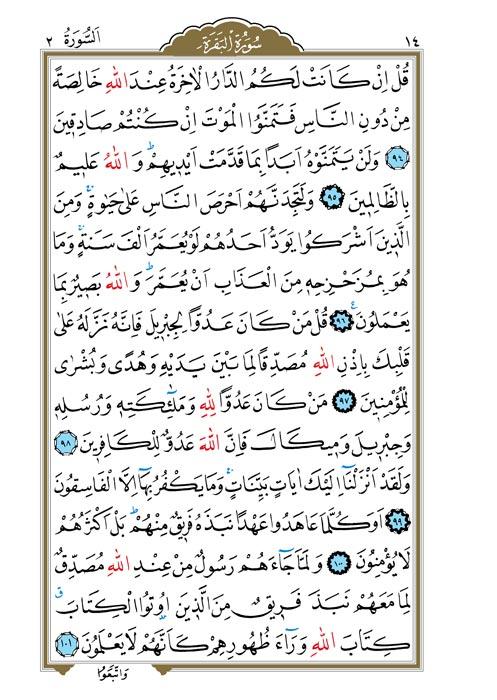 ١٤
سُورَةُ الْبَقَرَةِ
اَلسُّورَةُ ٢
قُلْ اِنْ كَانَتْ لَكُمُ الدَّارُ الْاٰخِرَةُ عِنْدَ اللّٰهِ خَالِصَةً
مِنْ دُونِ النَّاسِ فَتَمَنَّوُا الْمَوْتَ اِنْ كُنْتُمْ صَادِقٖينَ
﴿٩٤﴾ وَلَنْ يَتَمَنَّوْهُ اَبَداً بِمَا قَدَّمَتْ اَيْدٖيهِمْؕ وَاللّٰهُ عَلٖيمٌ
بِالظَّالِمٖينَ ﴿٩٥﴾ وَلَتَجِدَنَّهُمْ اَحْرَصَ النَّاسِ عَلٰى حَيٰوةٍۚ وَمِنَ
الَّذٖينَ اَشْرَكُوا يَوَدُّ اَحَدُهُمْ لَوْ يُعَمَّرُ اَلْفَ سَنَةٍۚ وَمَا
هُوَ بِمُزَحْزِحِهٖ مِنَ الْعَذَابِ اَنْ يُعَمَّرَؕ وَاللّٰهُ بَصٖيرٌ بِمَا
يَعْمَلُونَࣖ ﴿٩٦﴾ قُلْ مَنْ كَانَ عَدُواًّ لِجِبْرٖيلَ فَاِنَّهُ نَزَّلَهُ عَلٰى
قَلْبِكَ بِاِذْنِ اللّٰهِ مُصَدِّقاً لِمَا بَيْنَ يَدَيْهِ وَهُدًى وَبُشْرٰى
لِلْمُؤْمِنٖينَ ﴿٩٧﴾ مَنْ كَانَ عَدُواًّ لِلّٰهِ وَمَلٰٓئِكَتِهٖ وَرُسُلِهٖ
وَجِبْرٖيلَ وَمٖيكَالَ فَاِنَّ اللّٰهَ عَدُوٌّ لِلْكَافِرٖينَ ﴿٩٨﴾
وَلَقَدْ اَنْزَلْنَٓا اِلَيْكَ اٰيَاتٍ بَيِّنَاتٍۚ وَمَا يَكْفُرُ بِهَٓا اِلَّا الْفَاسِقُونَ
﴿٩٩﴾ اَوَكُلَّمَا عَاهَدُوا عَهْداً نَبَذَهُ فَرٖيقٌ مِنْهُمْؕ بَلْ اَكْثَرُهُمْ
لَا يُؤْمِنُونَ ﴿١٠٠﴾ وَلَمَّا جَٓاءَهُمْ رَسُولٌ مِنْ عِنْدِ اللّٰهِ مُصَدِّقٌ
لِمَا مَعَهُمْ نَبَذَ فَرٖيقٌ مِنَ الَّذٖينَ اُو۫تُوا الْكِتَابَࣗ
كِتَابَ اللّٰهِ وَرَٓاءَ ظُهُورِهِمْ كَاَنَّهُمْ لَا يَعْلَمُونَؗ ﴿١٠١﴾
وَاتَّبَعُوا